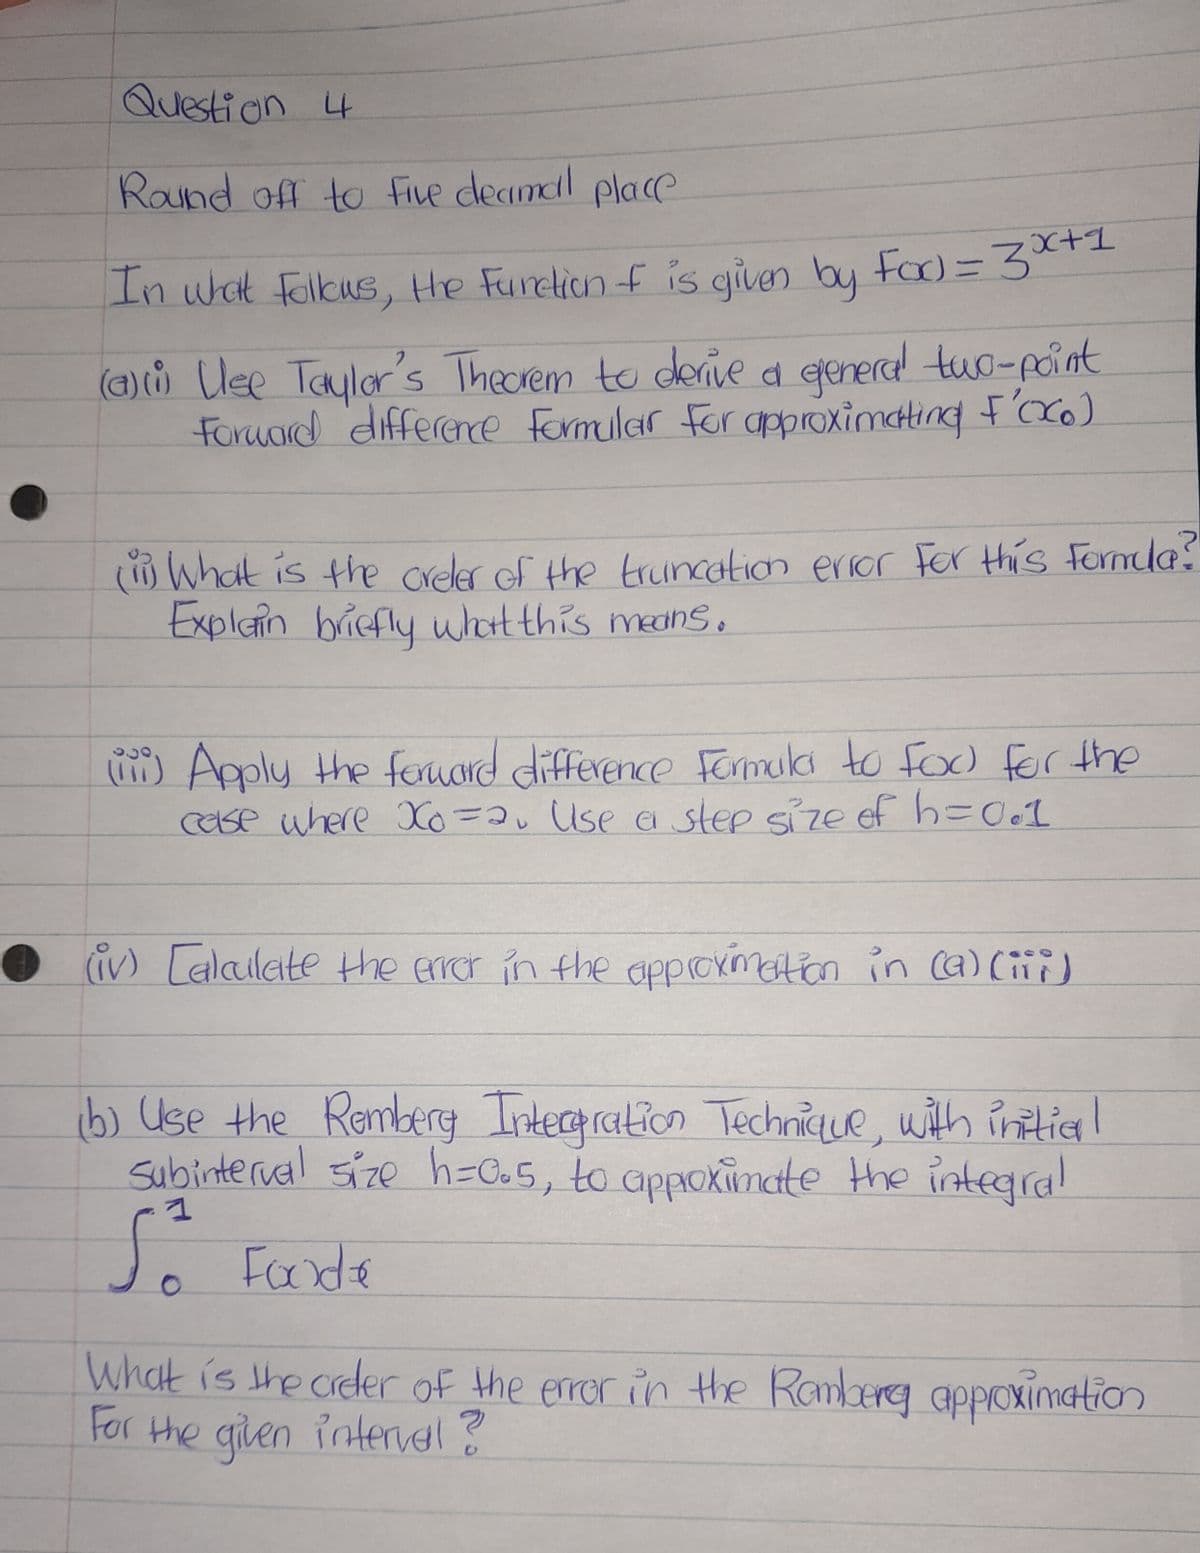 Question 4
Round off to five decimal place
In what follows, the function f is given by f(x) = 3^{x+1}
(a)(i) Use Taylor's Theorem to derive a general two-point
forward difference formular for approximating f'(x₀)
(ii) What is the order of the truncation error for this formula?
Explain briefly what this means.
(iii) Apply the forward difference formula to f(x) for the
case where x₀=2. Use a step size of h=0.1
(iv) Calculate the error in the approximation in (a)(iii)
(b) Use the Romberg Integration Technique, with initial
subinterval size h=0.5, to approximate the integral
∫₀¹ f(x)dx
What is the order of the error in the Romberg approximation
for the given interval?